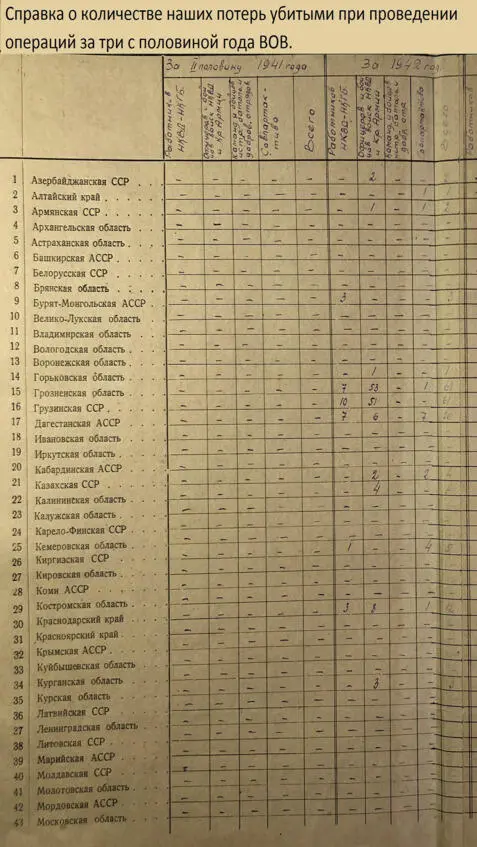 Справка о количестве наших потерь убитыми при проведении
операций за три с половиной года ВОВ.
За II половину 1941 года
За 1942 год
Работников НКВД-НКГБ.
Офицеров и бойцов войск НКВД и Кр. Армии
Совпартактива
Всего
Работников НКВД-НКГБ.
Офицеров и бойцов войск НКВД и Кр. Армии
Совпартактива
Всего
Работников
1 Азербайджанская ССР . . . – – – – – – 2 – –
2 Алтайский край . . . . . – – – – – – – – 1 1
3 Армянская ССР . . . . – – – – – – 1 – 1 2
4 Архангельская область . . . – – – – – – – – –
5 Астраханская область . . . – – – – – – – – –
6 Башкирская АССР . . . . – – – – – – – – –
7 Белорусская ССР . . . . . – – – – – – – – –
8 Брянская область . . . . – – – – – – – – –
9 Бурят-Монгольская АССР . . – – – – – 3 – – – 3
10 Велико-Лукская область – – – – – – – – –
11 Владимирская область . . . – – – – – – – – –
12 Вологодская область . . . – – – – – – – – –
13 Воронежская область . . . – – – – – – – – –
14 Горьковская область . . . – – – – – – 1 – – 1
15 Грозненская область . . . – – – – – 7 53 – 1 61
16 Грузинская ССР . . . . – – – – – 10 51 – – 61
17 Дагестанская АССР . . . – – – – – 7 6 – 7 20
18 Ивановская область . . . – – – – – – – – –
19 Иркутская область . . . – – – – – – – – –
20 Кабардинская АССР . . . – – – – – – – – –
21 Казахская ССР . . . . . – – – – – – 2 – 2
22 Калининская область . . . – – – – – – 4 – –
23 Калужская область . . . – – – – – – – – –
24 Карело-Финская ССР . . . – – – – – – – – –
25 Кемеровская область . . . – – – – – 1 – – 4 5
26 Киргизская ССР . . . . – – – – – – – – –
27 Кировская область . . . . – – – – – – – – –
28 Коми АССР . . . . . . – – – – – – – – –
29 Костромская область . . . – – – – – 3 8 – 1 12
30 Краснодарский край . . . – – – – – – – – –
31 Красноярский край . . . – – – – – – – – –
32 Крымская АССР . . . . – – – – – – – – –
33 Куйбышевская область . . . – – – – – – – – –
34 Курганская область . . . – – – – – – 3 – – 3
35 Курская область . . . . – – – – – – – – –
36 Латвийская ССР . . . . – – – – – – – – –
27 Ленинградская область . . . – – – – – – – – –
38 Литовская ССР . . . . – – – – – – – – –
39 Марийская АССР . . . . – – – – – – – – –
40 Молдавская ССР . . . . – – – – – – – – –
41 Молотовская область . . . – – – – – – – – –
42 Мордовская АССР . . . . – – – – – – – – –
43 Московская область . . . – – – – – – – – –